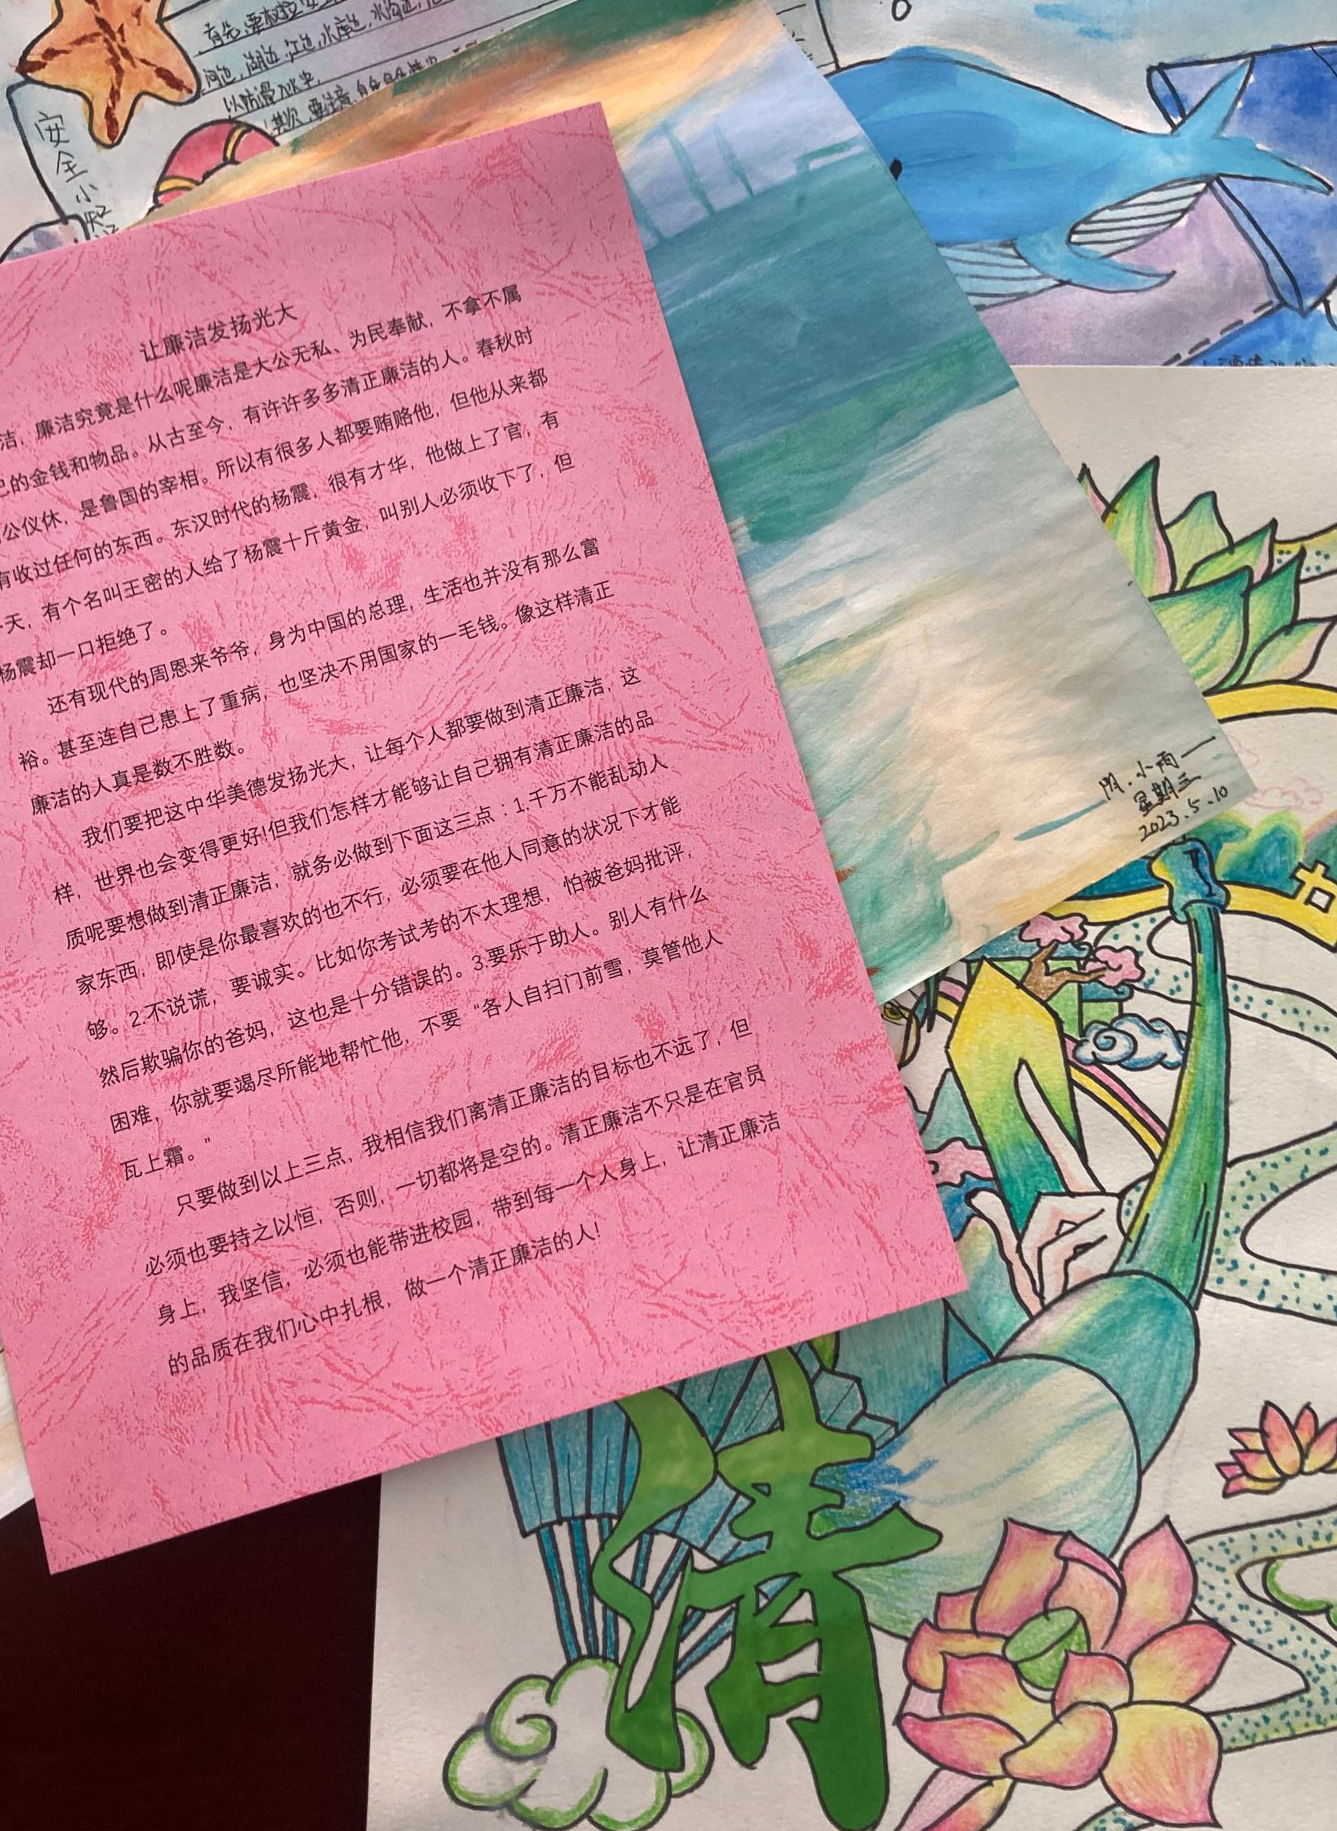 有
河边,湖边,江边,水库边,水沟边,
以防滑入水中.
其次,要注意
安全小
让廉洁发扬光大
洁，廉洁究竟是什么呢廉洁是大公无私、为民奉献，不拿不属
己的金钱和物品。从古至今，有许许多多清正廉洁的人。春秋时
公仪休，是鲁国的宰相。所以有很多人都要贿赂他，但他从来都
有收过任何的东西。东汉时代的杨震，很有才华，他做上了官，有
天，有个名叫王密的人给了杨震十斤黄金，叫别人必须收下了，但
杨震却一口拒绝了。
还有现代的周恩来爷爷，身为中国的总理，生活也并没有那么富
裕。甚至连自己患上了重病，也坚决不用国家的一毛钱。像这样清正
廉洁的人真是数不胜数。
我们要把这中华美德发扬光大，让每个人都要做到清正廉洁，这
样，世界也会变得更好!但我们怎样才能够让自己拥有清正廉洁的品
质呢要想做到清正廉洁，就务必做到下面这三点：1.千万不能乱动人
家东西，即使是你最喜欢的也不行，必须要在他人同意的状况下才能
够。2.不说谎，要诚实。比如你考试考的不太理想，怕被爸妈批评，
然后欺骗你的爸妈，这也是十分错误的。3.要乐于助人。别人有什么
困难，你就要竭尽所能地帮忙他，不要“各人自扫门前雪，莫管他人
瓦上霜。”
只要做到以上三点，我相信我们离清正廉洁的目标也不远了，但
必须也要持之以恒，否则，一切都将是空的。清正廉洁不只是在官员
身上，我坚信，必须也能带进校园，带到每一个人身上，让清正廉洁
的品质在我们心中扎根，做一个清正廉洁的人!
小雨
星期三
2023.5.10
清